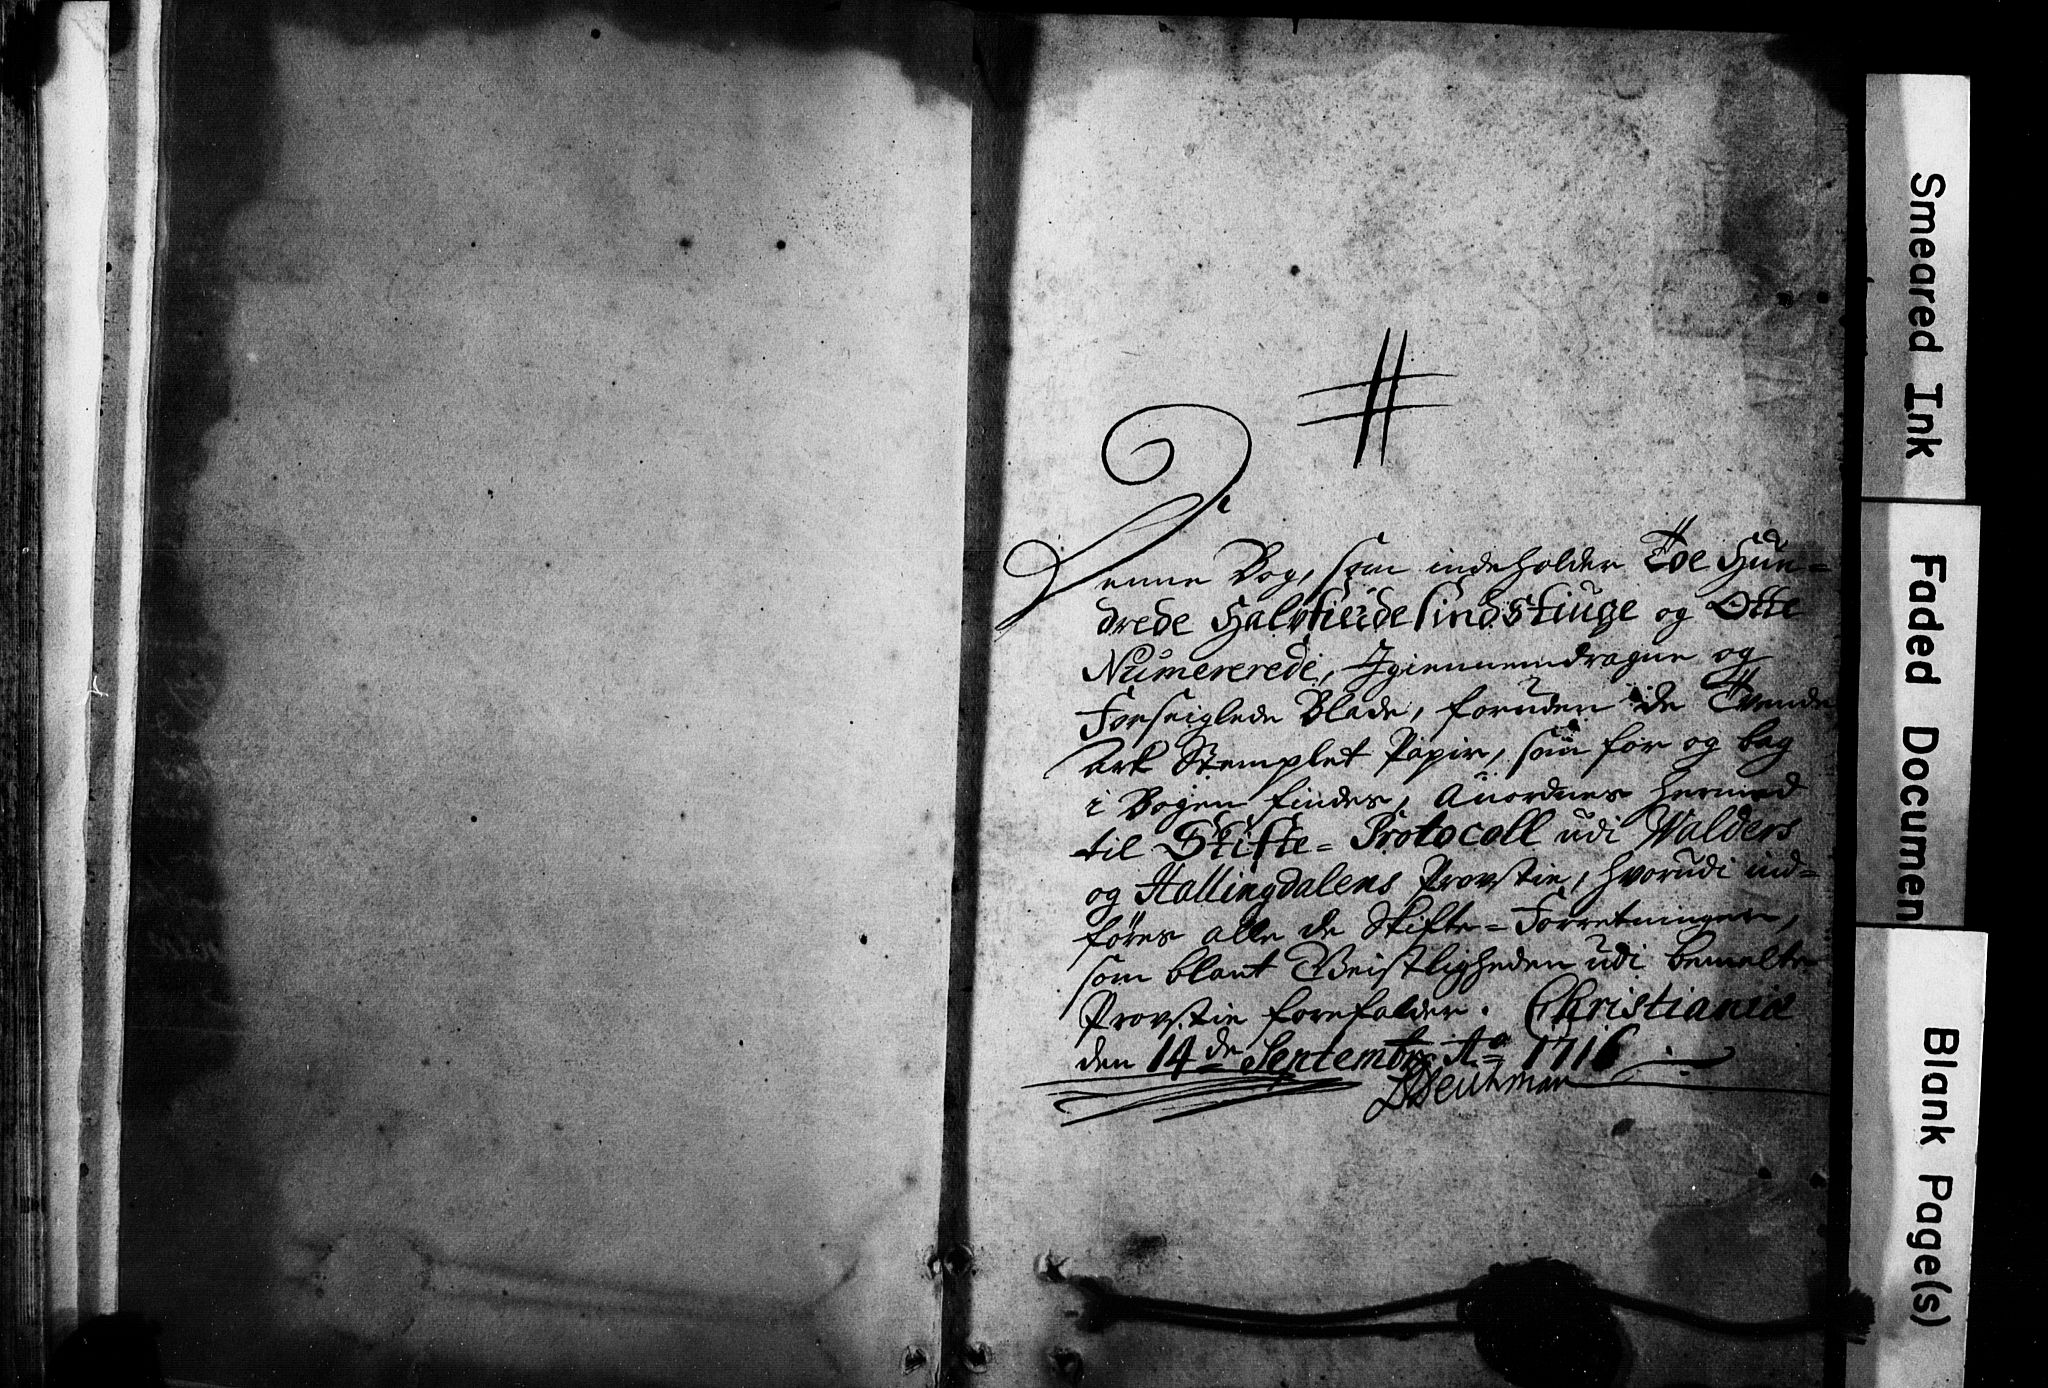 #
Denne Bog, som indeholder Toe Hun=
drede Halvfierdesindstiuge og Otte
Numererede, Igiennemdragne og
Forseiglede Blade, foruden de Tvende
Ark Stemplet Papir, som for og bag
i Bogen findes, Anordnes hermed
til Skifte=Protocoll udi Walders
og Hallingdalens Provstie, hvorudi ind=
føres alle de Skifte=Forretninger,
som blant Geistligheden udi bemelte
Provstie forefalder. Christiania
den 14de Septembr: Ao 1716
BDeichman
Smeared Ink
Faded Documen
Blank Page(s)